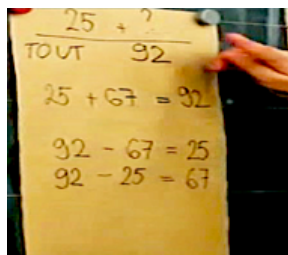 25 + ?
TOUT 92
25 + 67 = 92
92 - 67 = 25
92 - 25 = 67